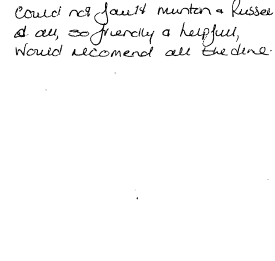 Could not fault Munton & Russell
at all, so friendly & helpfull,
Would recomend all the time.